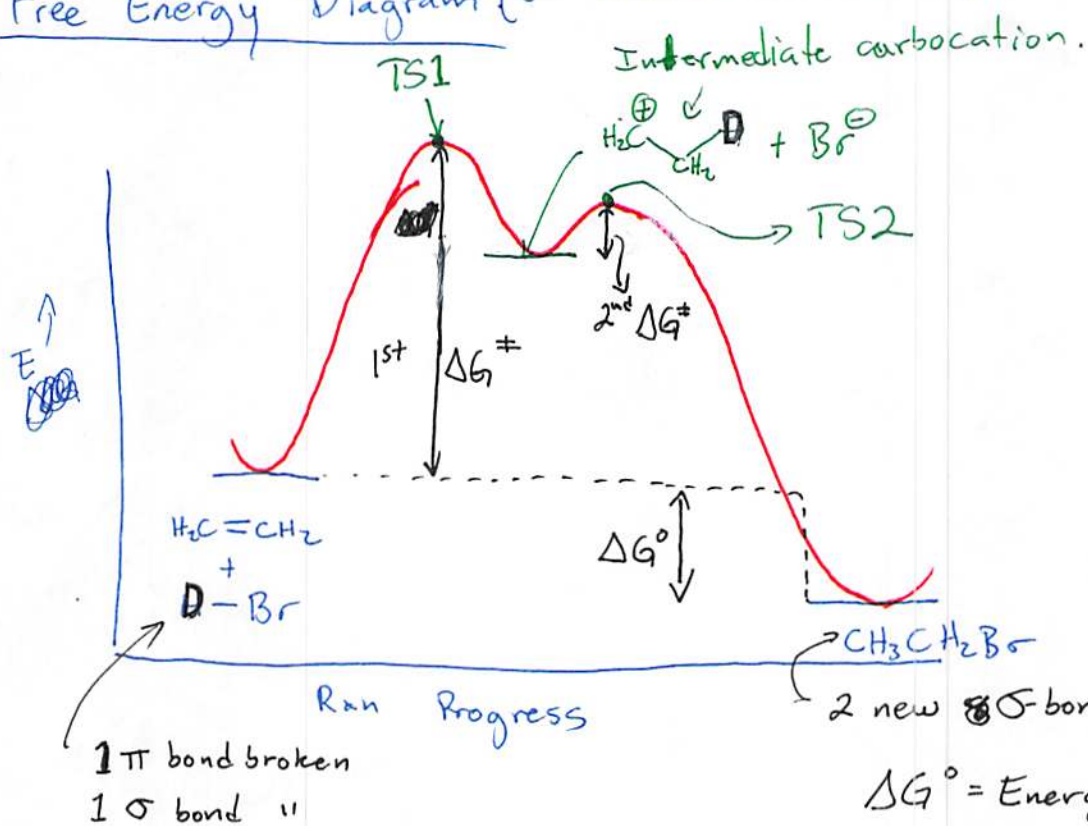 Free Energy Diagram
TS1
Intermediate carbocation.
H₂C⊕ CH₂ D + Br⊖
TS2
2nd ΔG‡
1st ΔG‡
E
H₂C=CH₂
+
D-Br
ΔG°
CH₃CH₂Br
Rxn Progress
2 new σ-bon
1 π bond broken
1 σ bond "
ΔG° = Energ